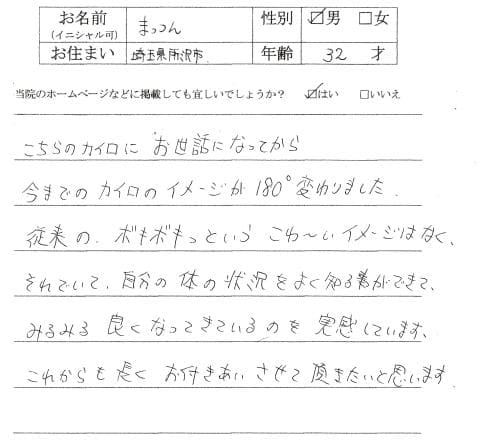 お名前 (イニシャル可) まっつん 性別 ☑男 □女
お住まい 埼玉県所沢市 年齢 32 才
当院のホームページなどに掲載しても宜しいでしょうか? ☑はい □いいえ
こちらのカイロに お世話になってから
今までの カイロの イメージが 180°変わりました.
従来の、ボキボキっという こわ〜いイメージはなく、
それでいて、自分の 体の 状況を よく 知る事ができて、
みるみる 良くなってきているのを 実感しています、
これからも 長く お付きあい させて 頂きたいと思います.